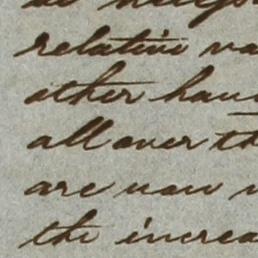 relative va
other hand
all over th
are now
the increa